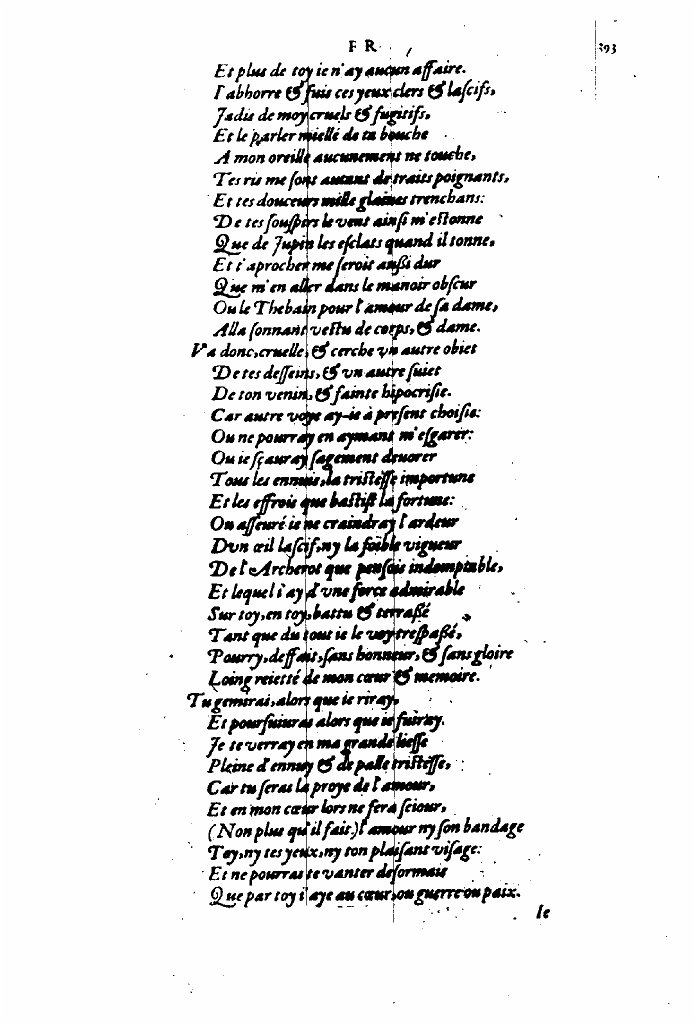 F R
393
Et plus de toy ie n'ay aucun affaire.
I'abhorre & fuis ces yeux clers & lascifs,
Jadis de moy cruels & fugitifs,
Et le parler miellé de ta bouche
A mon oreille aucunement ne touche,
Tes ris me sont autant de traits poignants,
Et tes douceurs mille glaiues trenchans:
De tes souspirs le vent ainsi m'estonne
Que de Jupin les esclats quand il tonne,
Et t'aprocher me seroit außi dur
Que m'en aller dans le manoir obscur
Ou le Thebain pour l'amour de sa dame,
Alla sonnant vestu de corps, & dame.
Va donc, cruelle, & cerche vn autre obiet
De tes desseins, & vn autre suiet
De ton venin, & fainte hipocrisie.
Car autre voye ay-ie à present choisie:
Ou ne pourray en aymant m'esgarer:
Ou ie sçauray sagement deuorer
Tous les ennuis, la tristesse importune
Et les effrois que bastist la fortune:
Ou asseuré ie ne craindray l'ardeur
Dvn œil lascif, ny la foible vigueur
De l'Archerot que pensois indomptable,
Et lequel i'ay d'vne force admirable
Sur toy, en toy, battu & terraßé
Tant que du tout ie le voy trespaßé,
Pourry, deffait, sans honneur, & sans gloire
Loing reietté de mon cœur & memoire.
Tu gemirai, alors que ie riray,
Et poursuiuras alors que ie fuiray.
Je te verray en ma grande liesse
Pleine d'ennuy & de palle tristesse,
Car tu seras la proye de l'amour,
Et en mon cœur lors ne fera seiour,
(Non plus qu'il fait.) l'amour ny son bandage
Toy, ny tes yeux, ny ton plaisant visage:
Et ne pourras te vanter desormais
Que par toy i'aye au cœur, ou guerre ou paix.
Ie